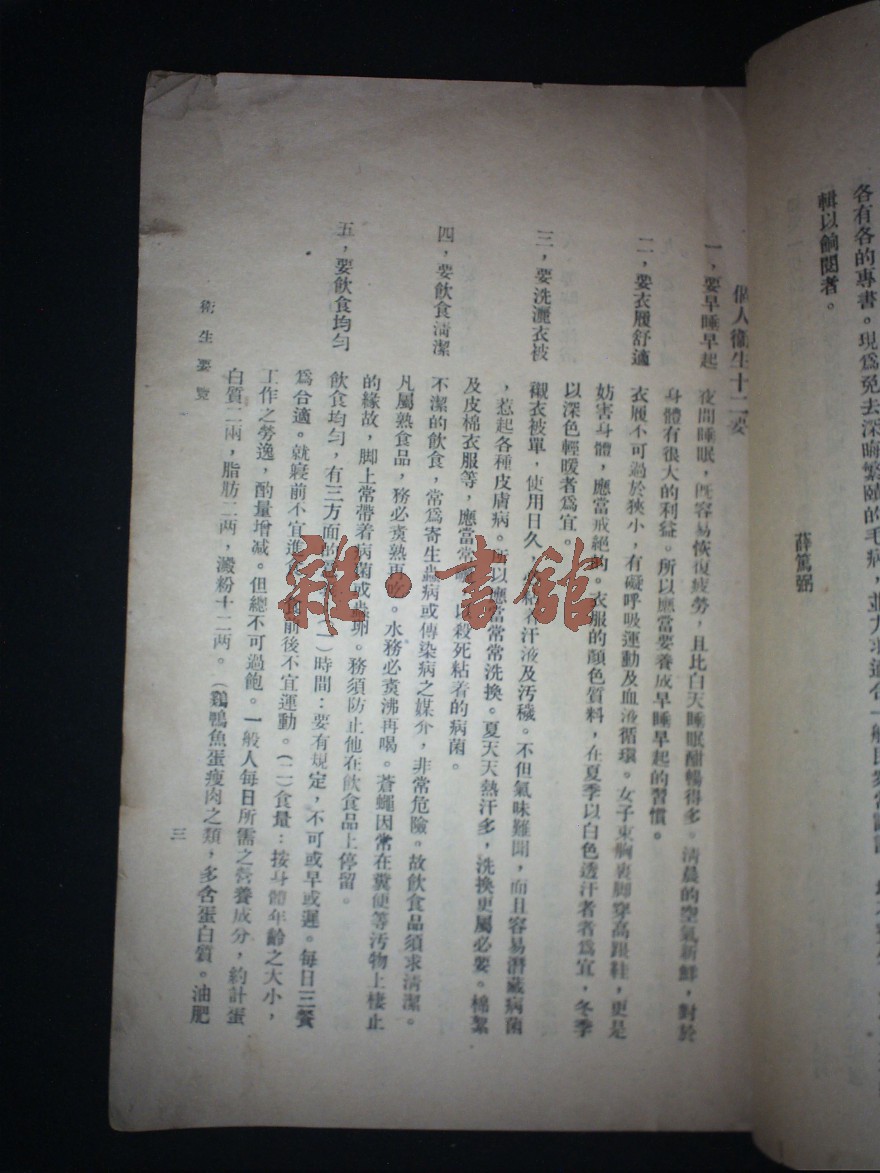 各有各的專書。現爲免去深晦繁賾的毛病，並力求適合一般民衆
輯以餉閱者。
薛篤弼
個人衛生十二要
一，要早睡早起　夜間睡眠，旣容易恢復疲勞，且比白天睡眠酣暢得多。清晨的空氣新鮮，對於
身體有很大的利益。所以應當要養成早睡早起的習慣。
二，要衣履舒適　衣履不可過於狹小，有礙呼吸運動及血液循環。女子束胸裹脚穿高跟鞋，更是
妨害身體，應當戒絕的。衣服的顏色質料，在夏季以白色透汗者爲宜，冬季
以深色輕暖者爲宜。
三，要洗灑衣被　襯衣被單，使用日久，汗液及汚穢。不但氣味難聞，而且容易潛藏病菌
，惹起各種皮膚病。所以應當常常洗換。夏天天熱汗多，洗換更屬必要。棉絮
及皮棉衣服等，應當常曬，以殺死粘着的病菌。
四，要飲食清潔　不潔的飲食，常爲寄生蟲病或傳染病之媒介，非常危險。故飲食品須求清潔。
凡屬熟食品，務必煑熟再吃。水務必煑沸再喝。蒼蠅因常在糞便等汚物上棲止
的緣故，脚上常帶着病菌或蟲卵。務須防止他在飲食品上停留。
五，要飲食均勻　飲食均勻，有三方面的（一）時間：要有規定，不可或早或遲。每日三餐
爲合適。就寢前不宜進食，食前後不宜運動。（二）食量：按身體年齡之大小，
工作之勞逸，酌量增減。但總不可過飽。一般人每日所需之營養成分，約計蛋
白質二兩，脂肪二两，澱粉十二两。（鷄鴨魚蛋瘦肉之類，多含蛋白質。油肥
衛生要覽
三
雜·書館